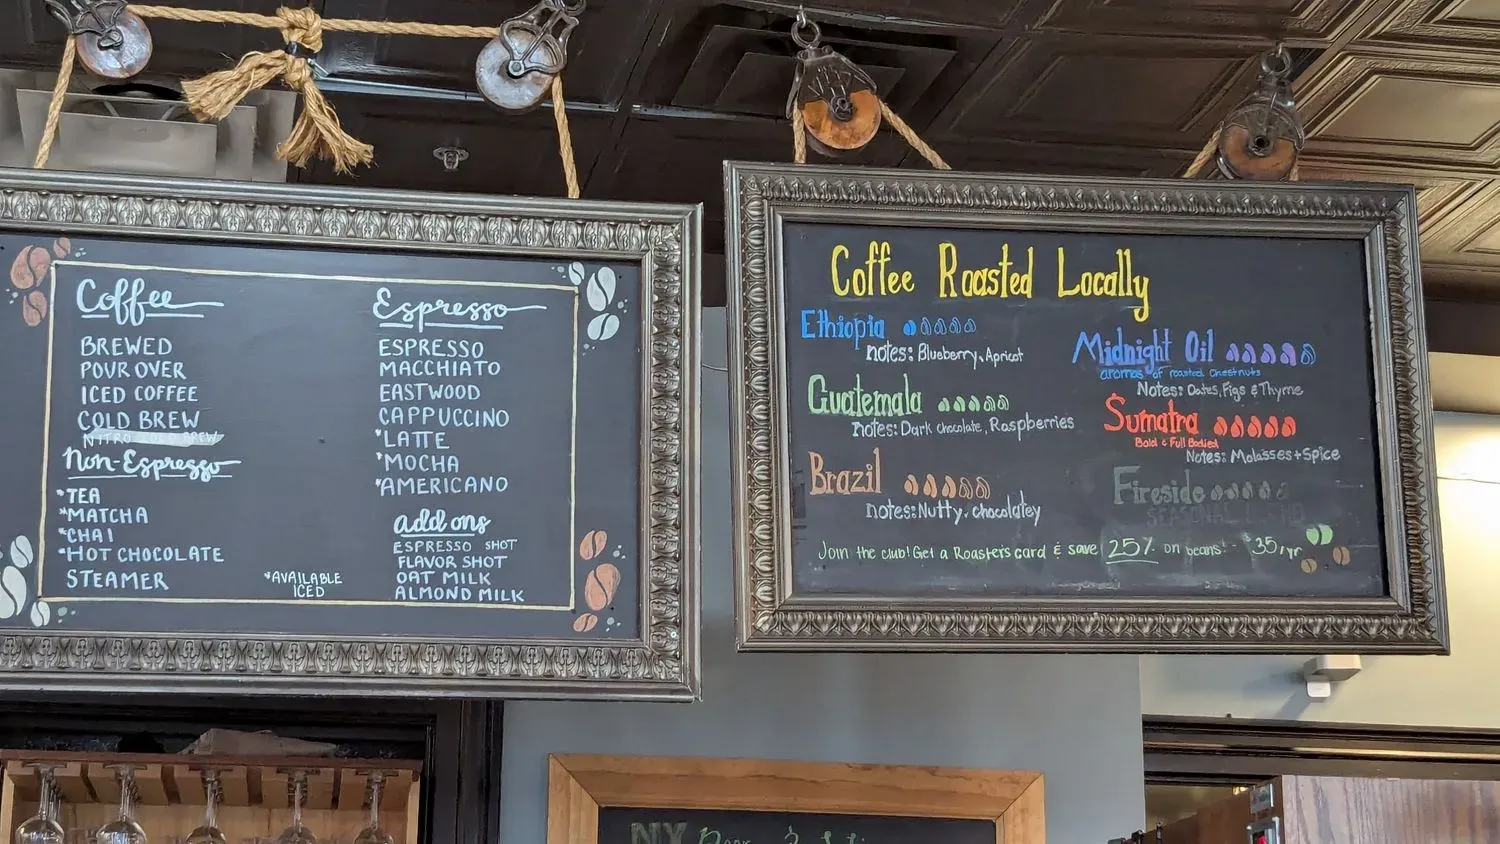 Coffee
BREWED
POUR OVER
ICED COFFEE
COLD BREW
NITRO COLD BREW
Non-Espresso
*TEA
*MATCHA
*CHAI
*HOT CHOCOLATE
STEAMER
*AVAILABLE
ICED
Espresso
ESPRESSO
MACCHIATO
EASTWOOD
CAPPUCCINO
*LATTE
*MOCHA
*AMERICANO
add ons
ESPRESSO SHOT
FLAVOR SHOT
OAT MILK
ALMOND MILK
Coffee Roasted Locally
Ethiopia
notes: Blueberry, Apricot
Guatemala
notes: Dark chocolate, Raspberries
Brazil
notes: Nutty, chocolatey
Midnight Oil
aromas of roasted chestnuts
Notes: Dates, Figs & Thyme
Sumatra
Bold & Full Bodied
Notes: Molasses + Spice
Fireside
SEASONAL
Join the club! Get a Roasters card & save 25% on beans! - $35/yr
NY